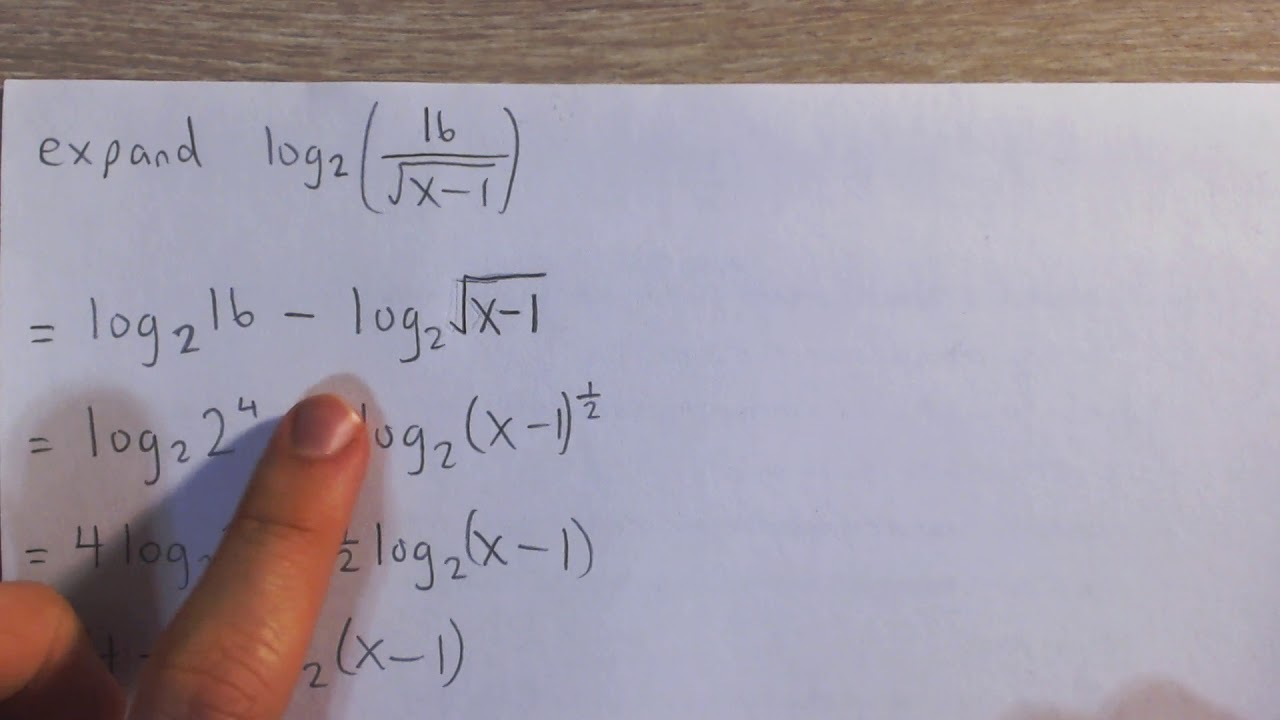 expand log₂(16/√(x-1))
= log₂16 - log₂√(x-1)
= log₂2⁴ log₂(x-1)^½
= 4log ½log₂(x-1)
₂(x-1)